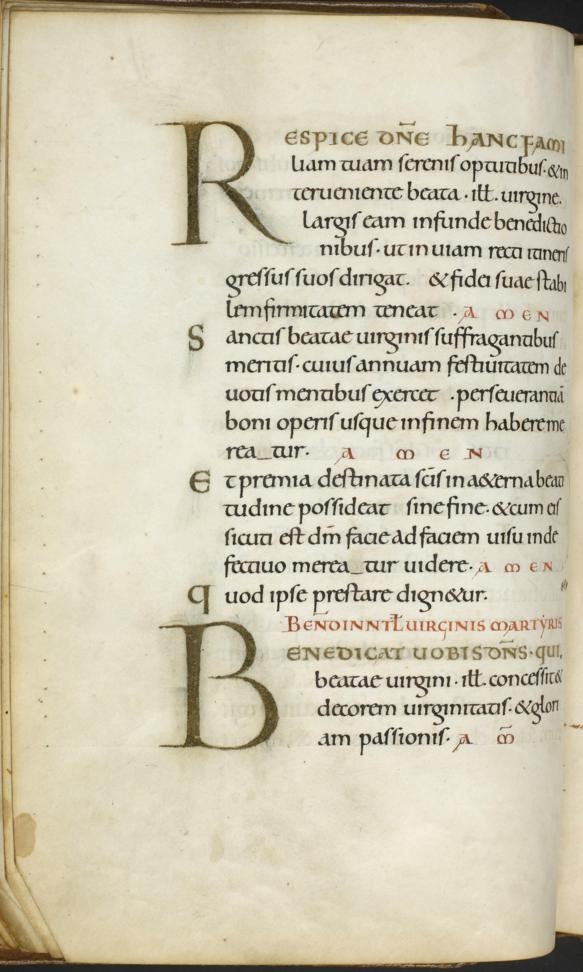 RESPICE DN̄E hANC FAMI
liam tuam serenis optutibus. & in
terueniente beata. ill. uirgine.
Largis eam infunde benedictio
nibus. ut in uiam recti itineris
gressus suos dirigat. & fidei suae stabi
lem firmitatem teneat. AMEN
Sanctis beatae uirginis suffragantibus
meritis. cuius annuam festiuitatem de
uotis mentibus exercet. perseuerantiā
boni operis usque in finem habere me
rea_tur. AMEN
Et premia destinata sc̄is in a&erna beati
tudine possideat sine fine. & cum eis
sicuti est dm̄ facie ad faciem uisu inde
fectiuo merea_tur uidere. AMEN
quod ipse prestare dign&ur.
BEN̄D IN NT̄L UIRGINIS MARTYRIS
BENEDICAT UOBIS DN̄S. qui,
beatae uirgini. ill. concessit &
decorem uirginitatis. & glori
am passionis. AM̄